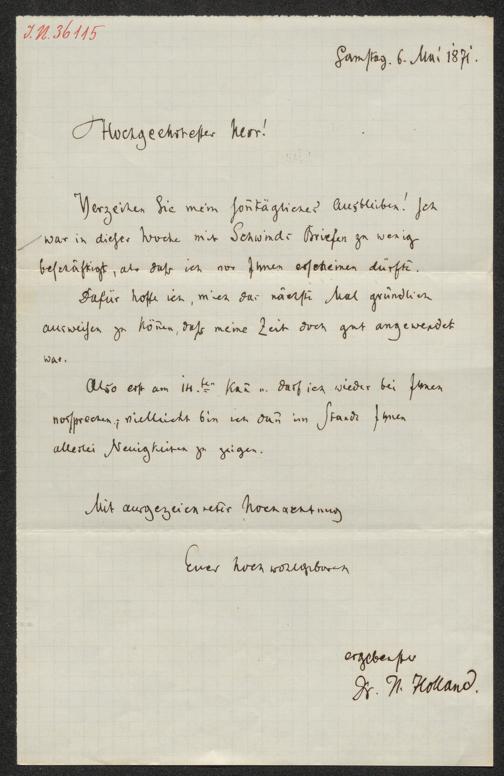 J.N. 36115
Samstag. 6. Mai 1871.
Hochgeehrtester Herr!
Verzeihen Sie mein sonntägliches Ausbleiben! Ich
war in dieser Woche mit Schwinds Briefen zu wenig
beschäftigt, als daß ich vor Ihnen erscheinen dürfte.
Dafür hoffe ich, mich das nächste Mal gründlich
ausweisen zu können, daß meine Zeit doch gut angewendet
war.
Also erst am 14.ten kann u. darf ich wieder bei Ihnen
vorsprechen; vielleicht bin ich dann im Stande Ihnen
allerlei Neuigkeiten zu zeigen.
Mit ausgezeichneter Hochachtung
Euer Hochwohlgeboren
ergebenster
Dr. H. Holland.